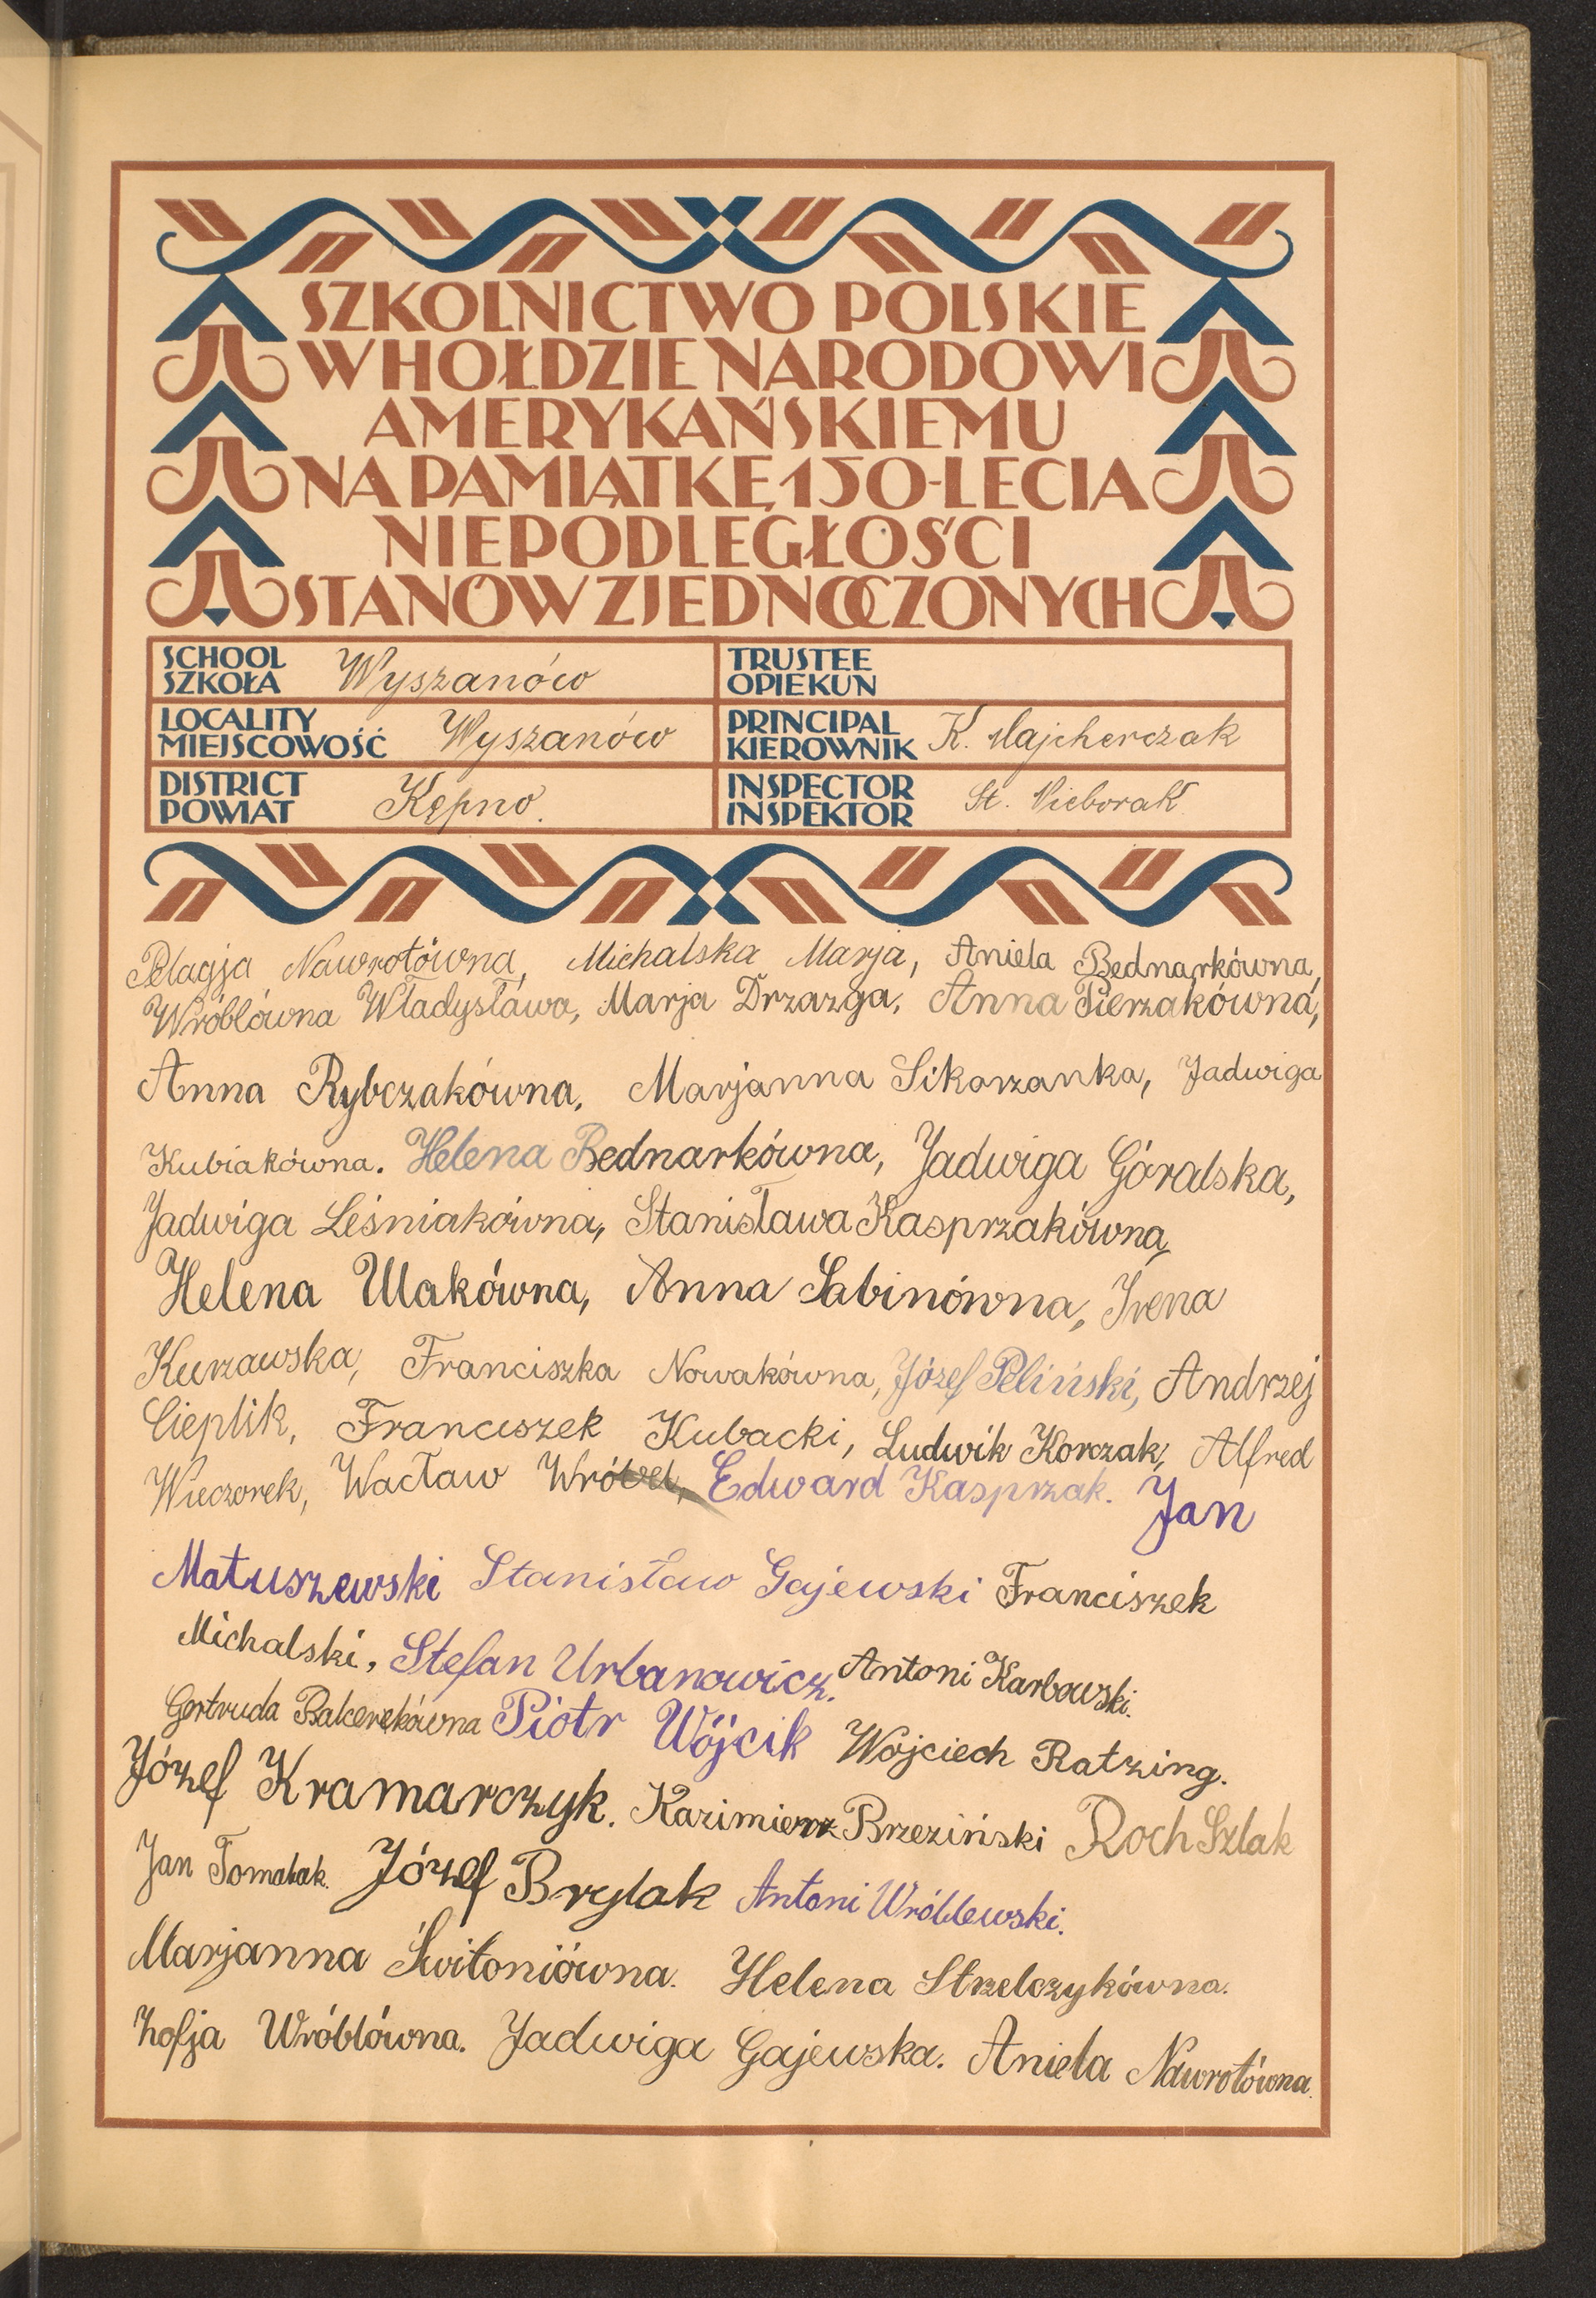 SZKOLNICTWO POLSKIE
W HOŁDZIE NARODOWI
AMERYKAŃSKIEMU
NA PAMIĄTKĘ 150-LECIA
NIEPODLEGŁOŚCI
STANÓW ZJEDNOCZONYCH
SCHOOL
SZKOŁA Wyszanów
TRUSTEE
OPIEKUN
LOCALITY
MIEJSCOWOŚĆ Wyszanów
PRINCIPAL
KIEROWNIK K. Majcherczak
DISTRICT
POWIAT Kępno.
INSPECTOR
INSPEKTOR St.
Pelagja Nawrotówna, Michalska Marja, Aniela Bednarkówna,
Wróblówna Władysława, Marja Drzazga, Anna Pierzakówna,
Anna Rybczakówna, Marjanna Sikorzanka, Jadwiga
Kubiakówna. Helena Bednarkówna, Jadwiga Góralska,
Jadwiga Leśniakówna, Stanisława Kasprzakówna,
Helena Ulakówna, Anna Sabinówna, Irena
Kurzawska, Franciszka Nowakówna, Józef Peliński, Andrzej
Cieplik, Franciszek Kubacki, Ludwik Korczak, Alfred
Wieczorek, Wacław Wróbel, Edward Kasprzak. Jan
Matuszewski Stanisław Gajewski Franciszek
Michalski, Stefan Urbanowicz. Antoni Karbowski.
Gertruda Balcerekówna Piotr Wójcik Wojciech Ratzing.
Józef Kramarczyk. Kazimierz Brzeziński Roch Szlak
Jan Tomalak. Józef Brylak Antoni Wróblewski.
Marjanna Świtoniówna. Helena Strzelczykówna.
Zofja Wróblówna. Jadwiga Gajewska. Aniela Nawrotówna.